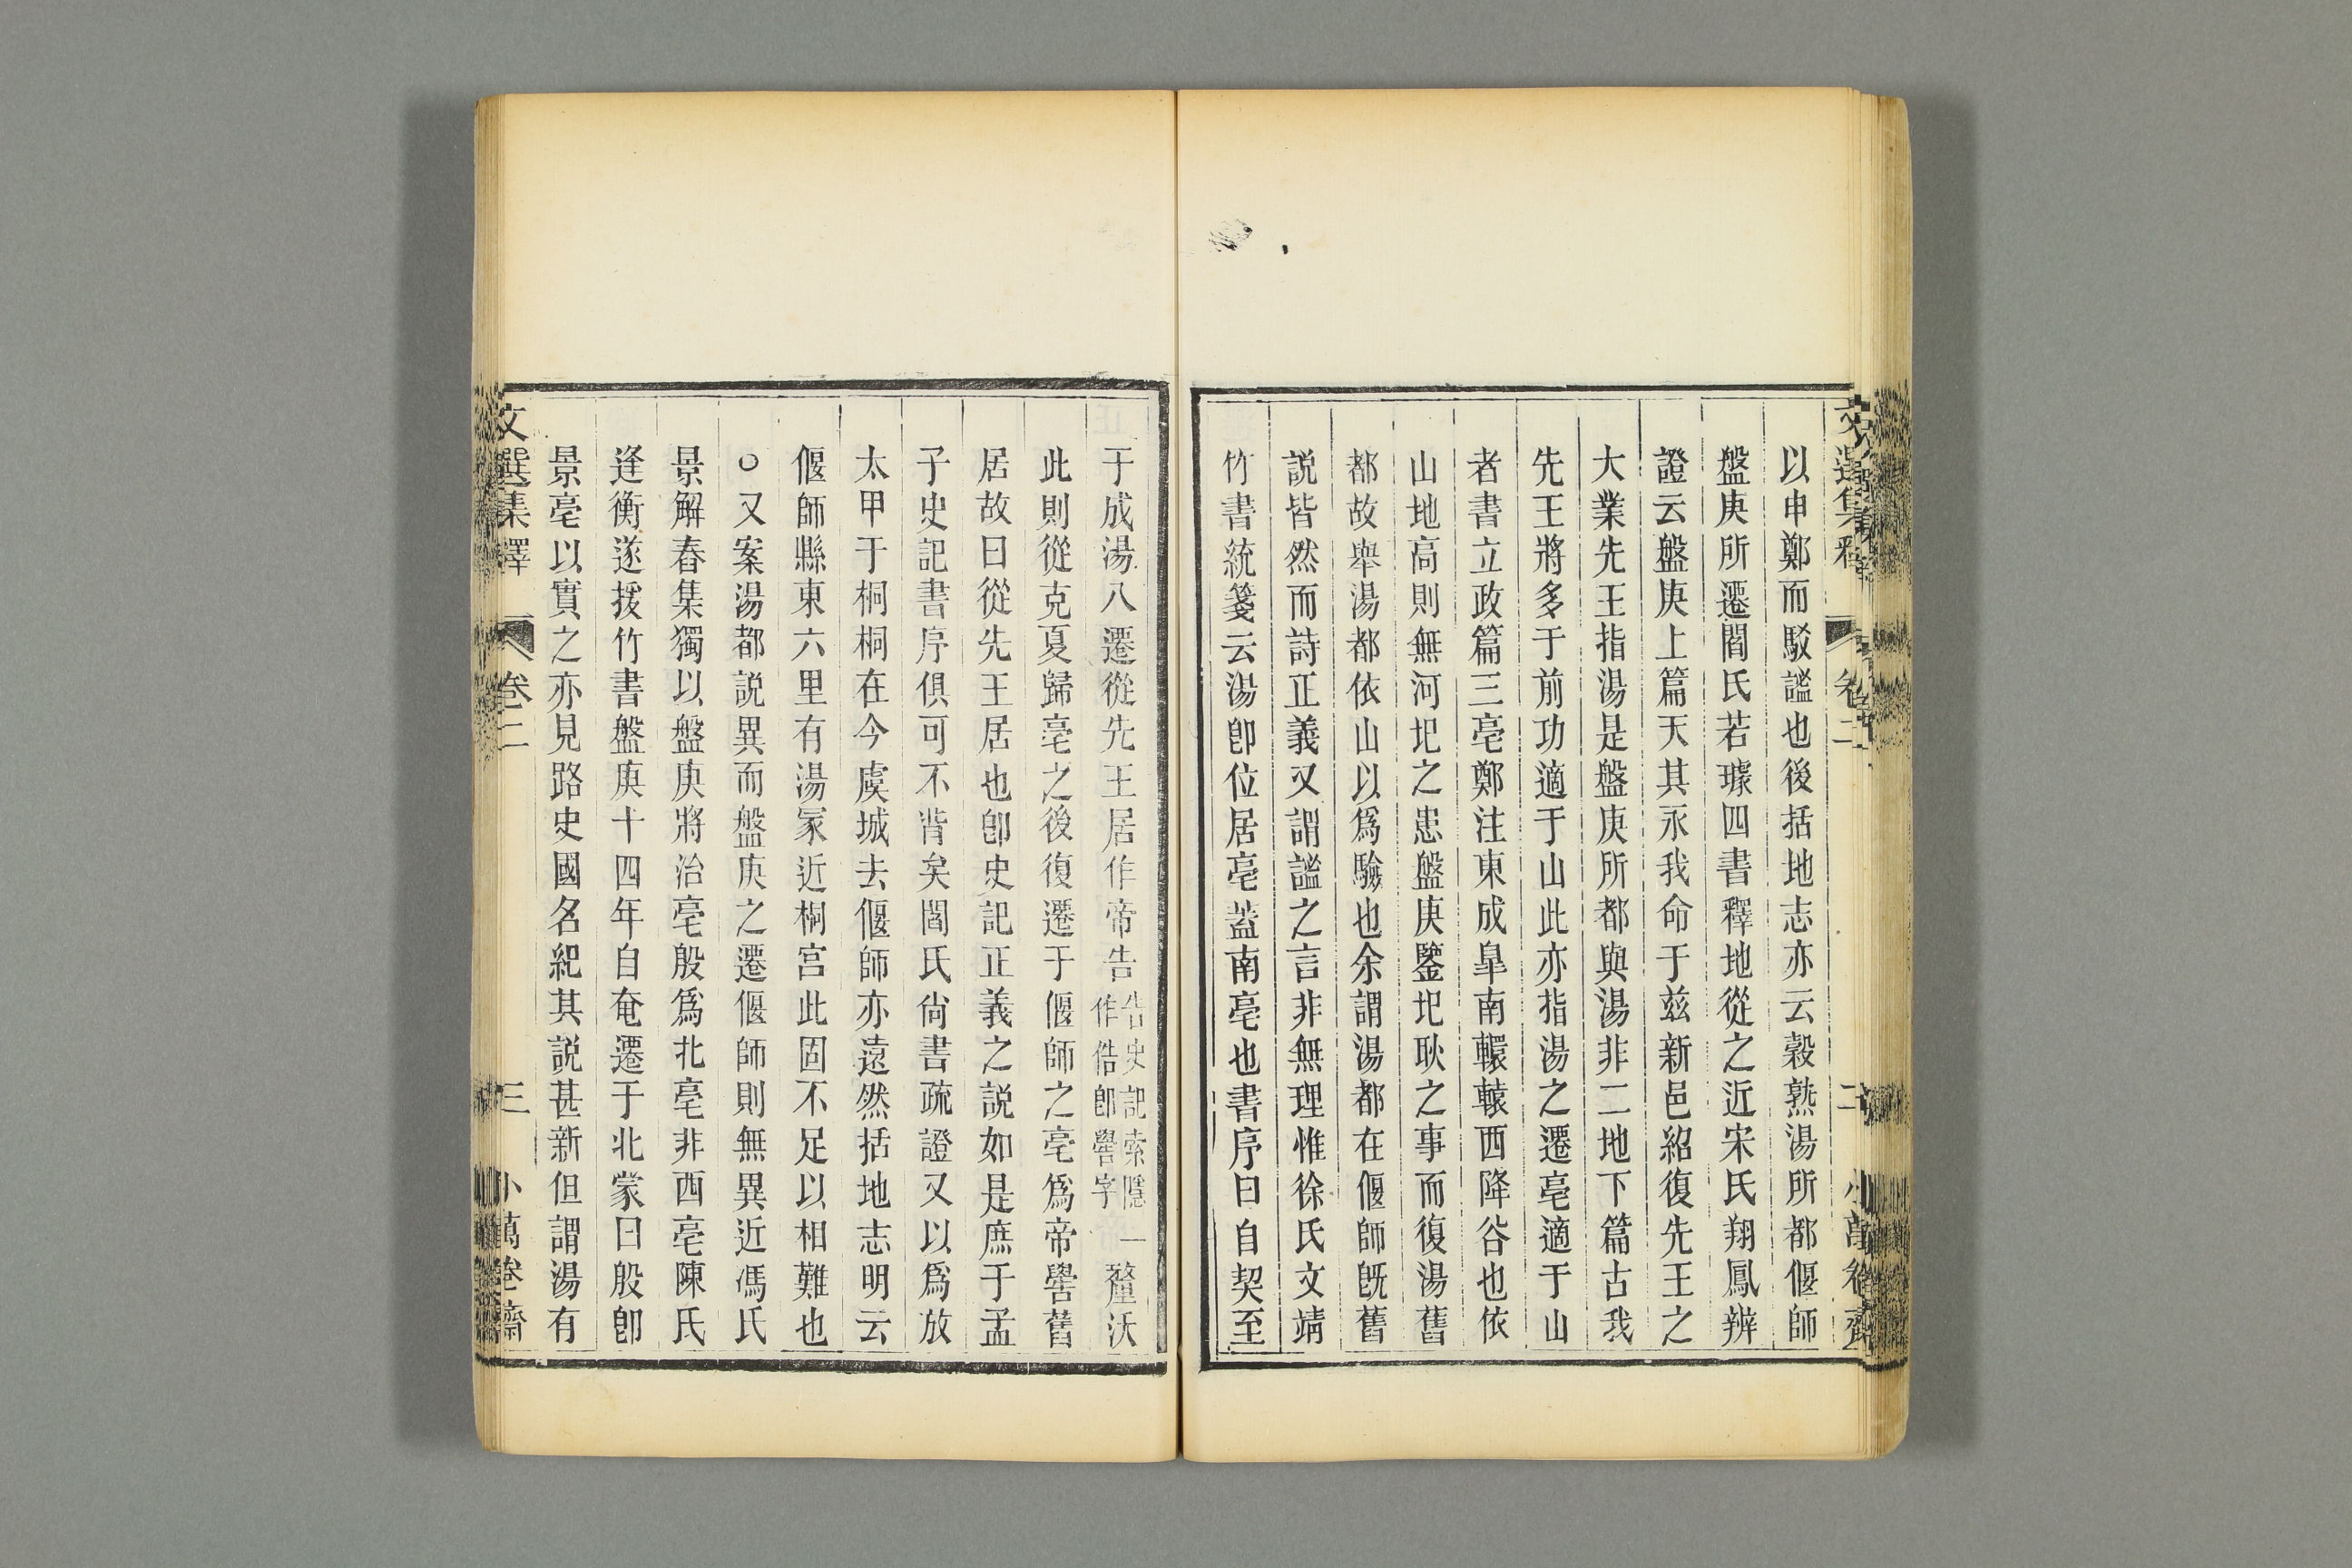 文選集釋 卷二 二 小萬卷齋
以申鄭而駁謐也後括地志亦云穀熟湯所都偃師
盤庚所遷閻氏若璩四書釋地從之近宋氏翔鳳辨
證云盤庚上篇天其永我命于兹新邑紹復先王之
大業先王指湯是盤庚所都與湯非二地下篇古我
先王將多于前功適于山此亦指湯之遷亳適于山
者書立政篇三亳鄭注東成臯南轘轅西降谷也依
山地高則無河圯之患盤庚鑒圯耿之事而復湯舊
都故舉湯都依山以爲驗也余謂湯都在偃師旣舊
説皆然而詩正義又謂謐之言非無理惟徐氏文靖
竹書統箋云湯卽位居亳蓋南亳也書序曰自契至
于成湯八遷從先王居作帝告告史記索隱作俈卽嚳字一釐沃
此則從克夏歸亳之後復遷于偃師之亳爲帝嚳舊
居故曰從先王居也卽史記正義之説如是庶于孟
子史記書序俱可不背矣閻氏尙書疏證又以爲放
太甲于桐桐在今虞城去偃師亦遠然括地志明云
偃師縣東六里有湯冢近桐宮此固不足以相難也
○又案湯都説異而盤庚之遷偃師則無異近馮氏
景解舂集獨以盤庚將治亳殷爲北亳非西亳陳氏
逢衡遂援竹書盤庚十四年自奄遷于北蒙曰殷卽
景亳以實之亦見路史國名紀其説甚新但謂湯有
文選集釋 卷二 三 小萬卷齋